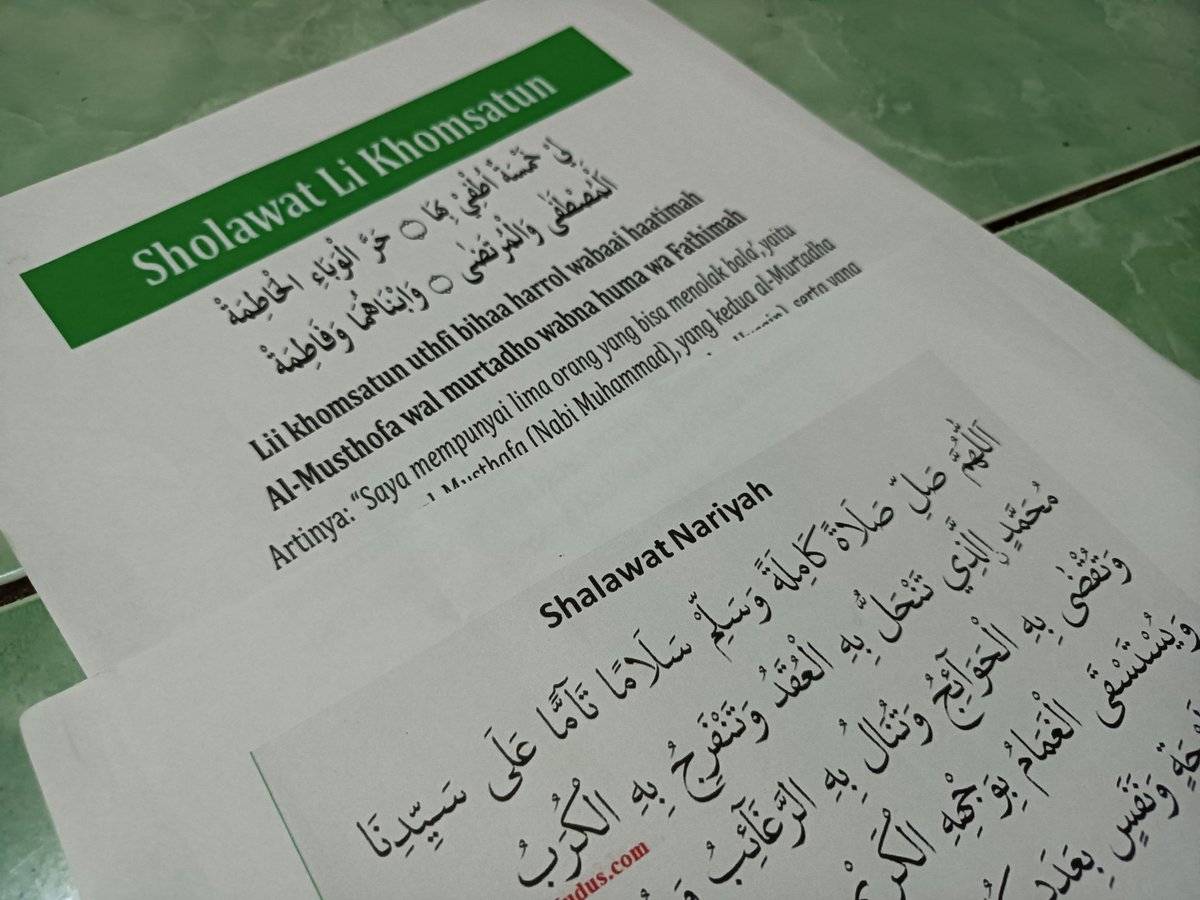 Sholawat Li Khomsatun
لِيْ خَمْسَةٌ أُطْفِيْ بِهَا ۝ حَرَّ الْوَبَاءِ الْحَاطِمَةْ
اَلْمُصْطَفَى وَالْمُرْتَضَى ۝ وَابْنَاهُمَا وَفَاطِمَةْ
Lii khomsatun uthfi bihaa harrol wabaai haatimah
Al-Musthofa wal murtadho wabna huma wa Fathimah
Artinya: “Saya mempunyai lima orang yang bisa menolak bala’, yaitu
Musthafa (Nabi Muhammad), yang kedua al-Murtadha
serta yang
Shalawat Nariyah
اَللّٰهُمَّ صَلِّ صَلَاةً كَامِلَةً وَسَلِّمْ سَلَامًا تَآمًّا عَلَى سَيِّدِنَا
مُحَمَّدٍ الَّذِي تَنْحَلُّ بِهِ الْعُقَدُ وَتَنْفَرِجُ بِهِ الْكُرَبُ
وَتُقْضٰى بِهِ الْحَوَآئِجُ وَتُنَالُ بِهِ الرَّغَآئِبُ
وَيُسْتَسْقَى الْغَمَامُ بِوَجْهِهِ
وَنَفَسٍ بِعَدَدِ
udus.com